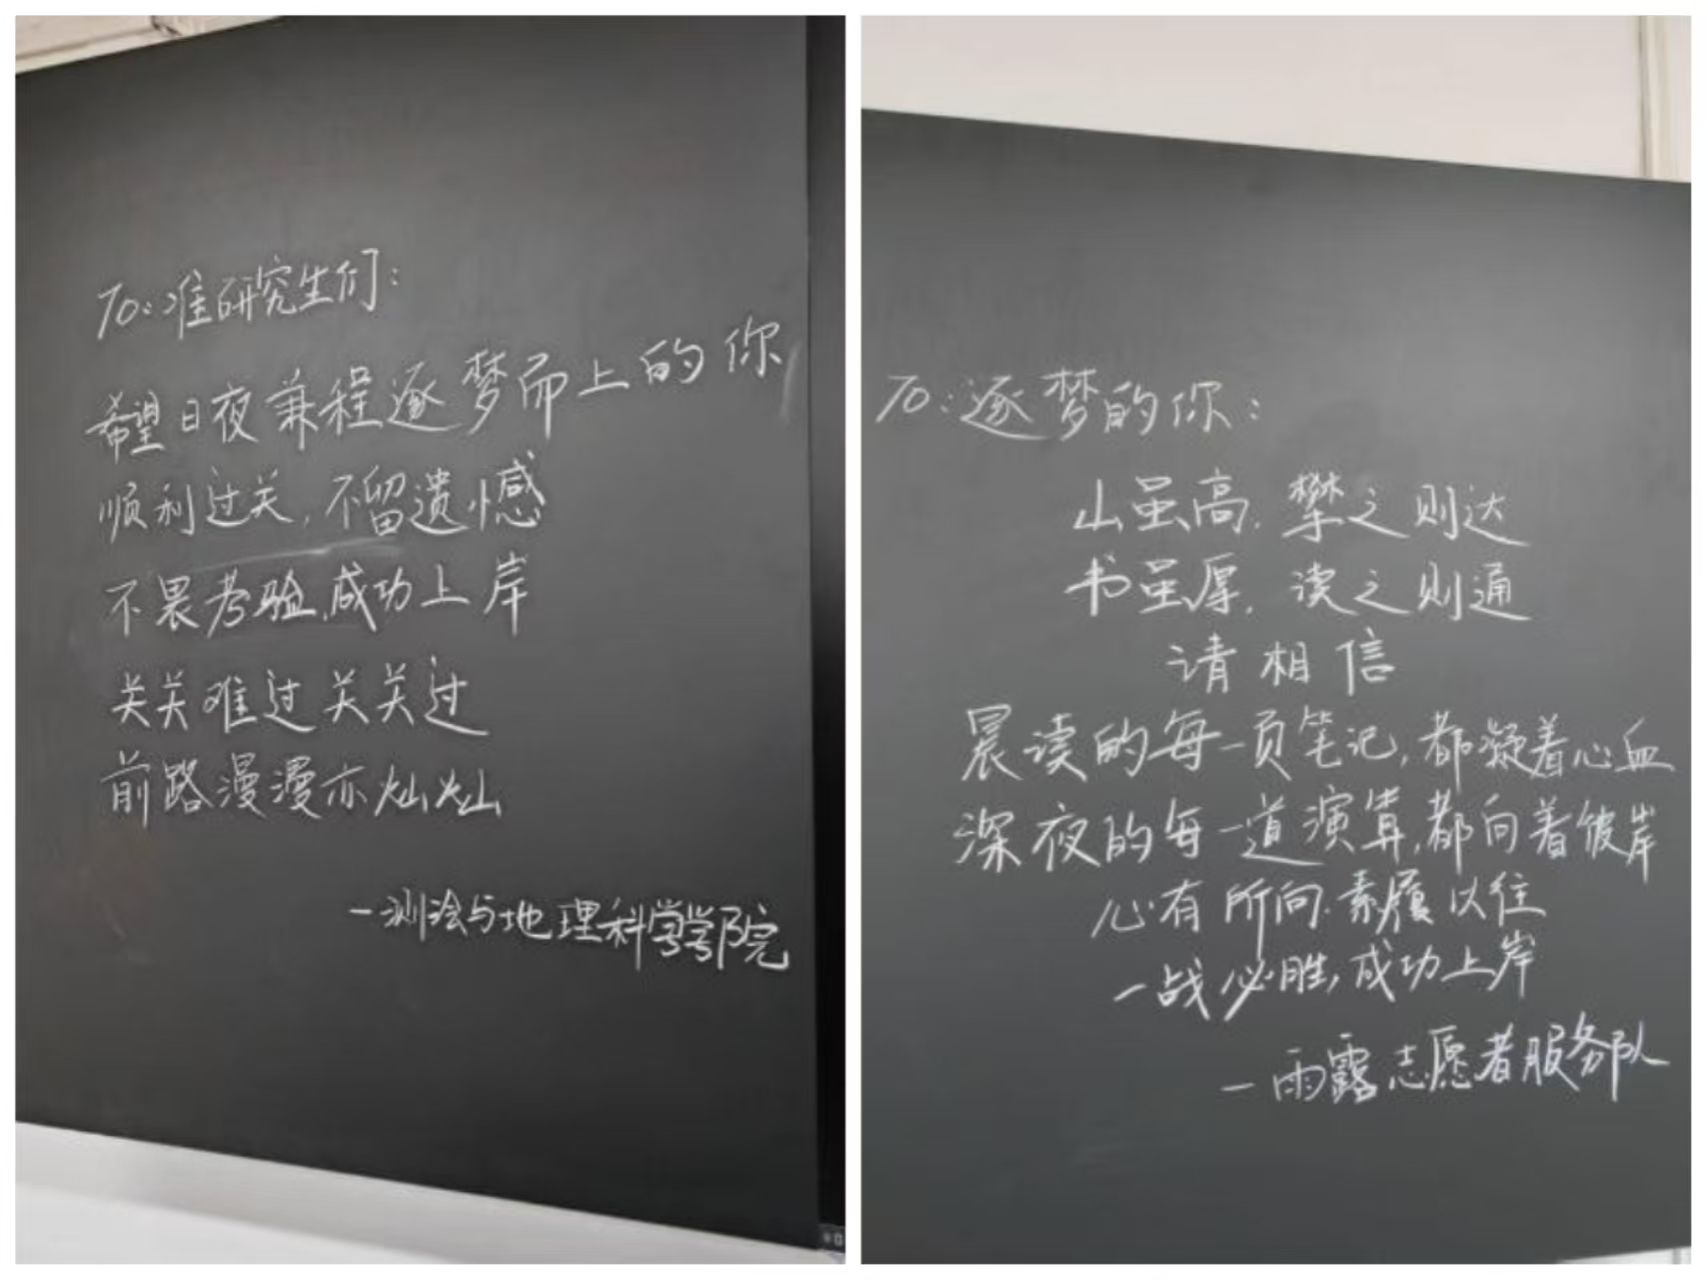 TO:准研究生们:
希望日夜兼程逐梦而上的你
顺利过关,不留遗憾
不畏考验,成功上岸
关关难过关关过
前路漫漫亦灿灿
—测绘与地理科学学院
TO:逐梦的你:
山虽高,攀之则达
书虽厚,读之则通
请相信
晨读的每一页笔记,都凝着心血
深夜的每一道演算,都向着彼岸
心有所向,素履以往
一战必胜,成功上岸
—雨露志愿者服务队